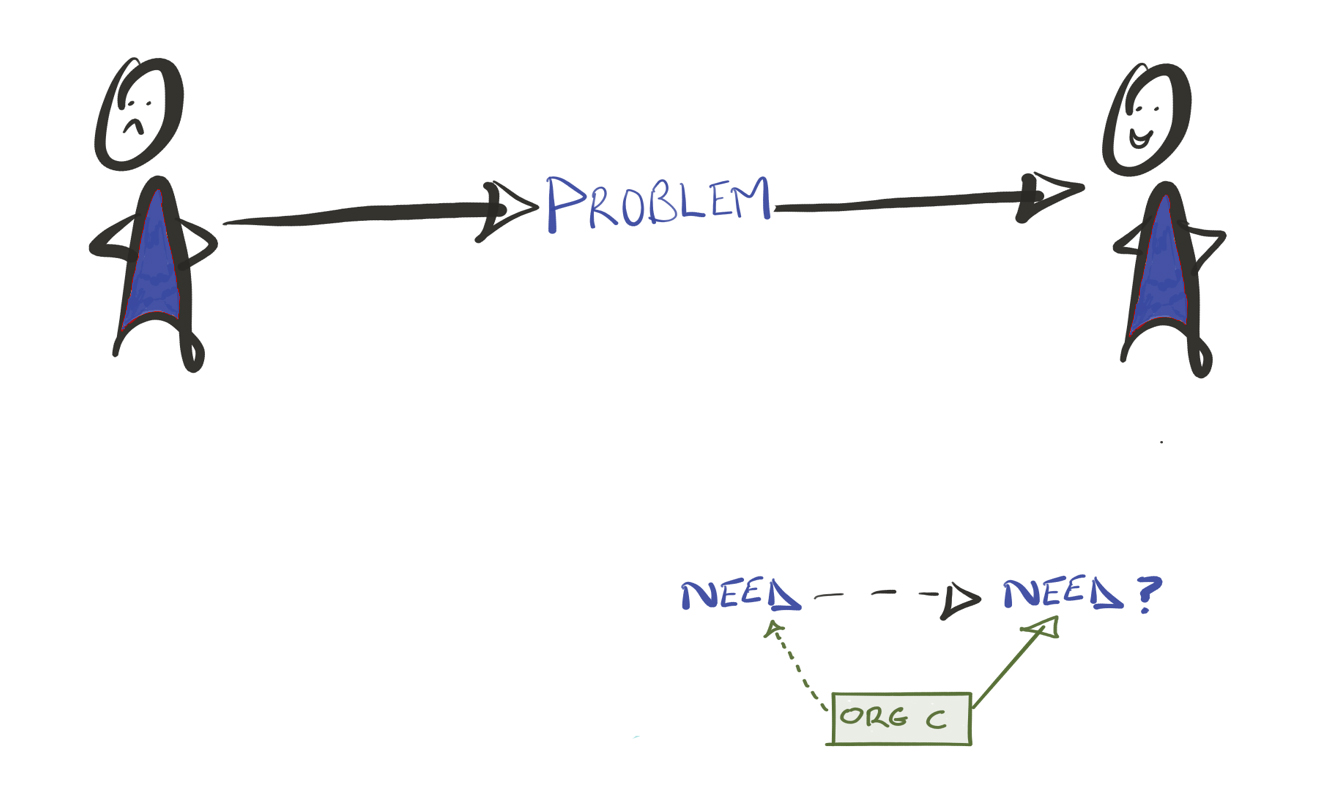 PROBLEM
NEED NEED?
ORG C